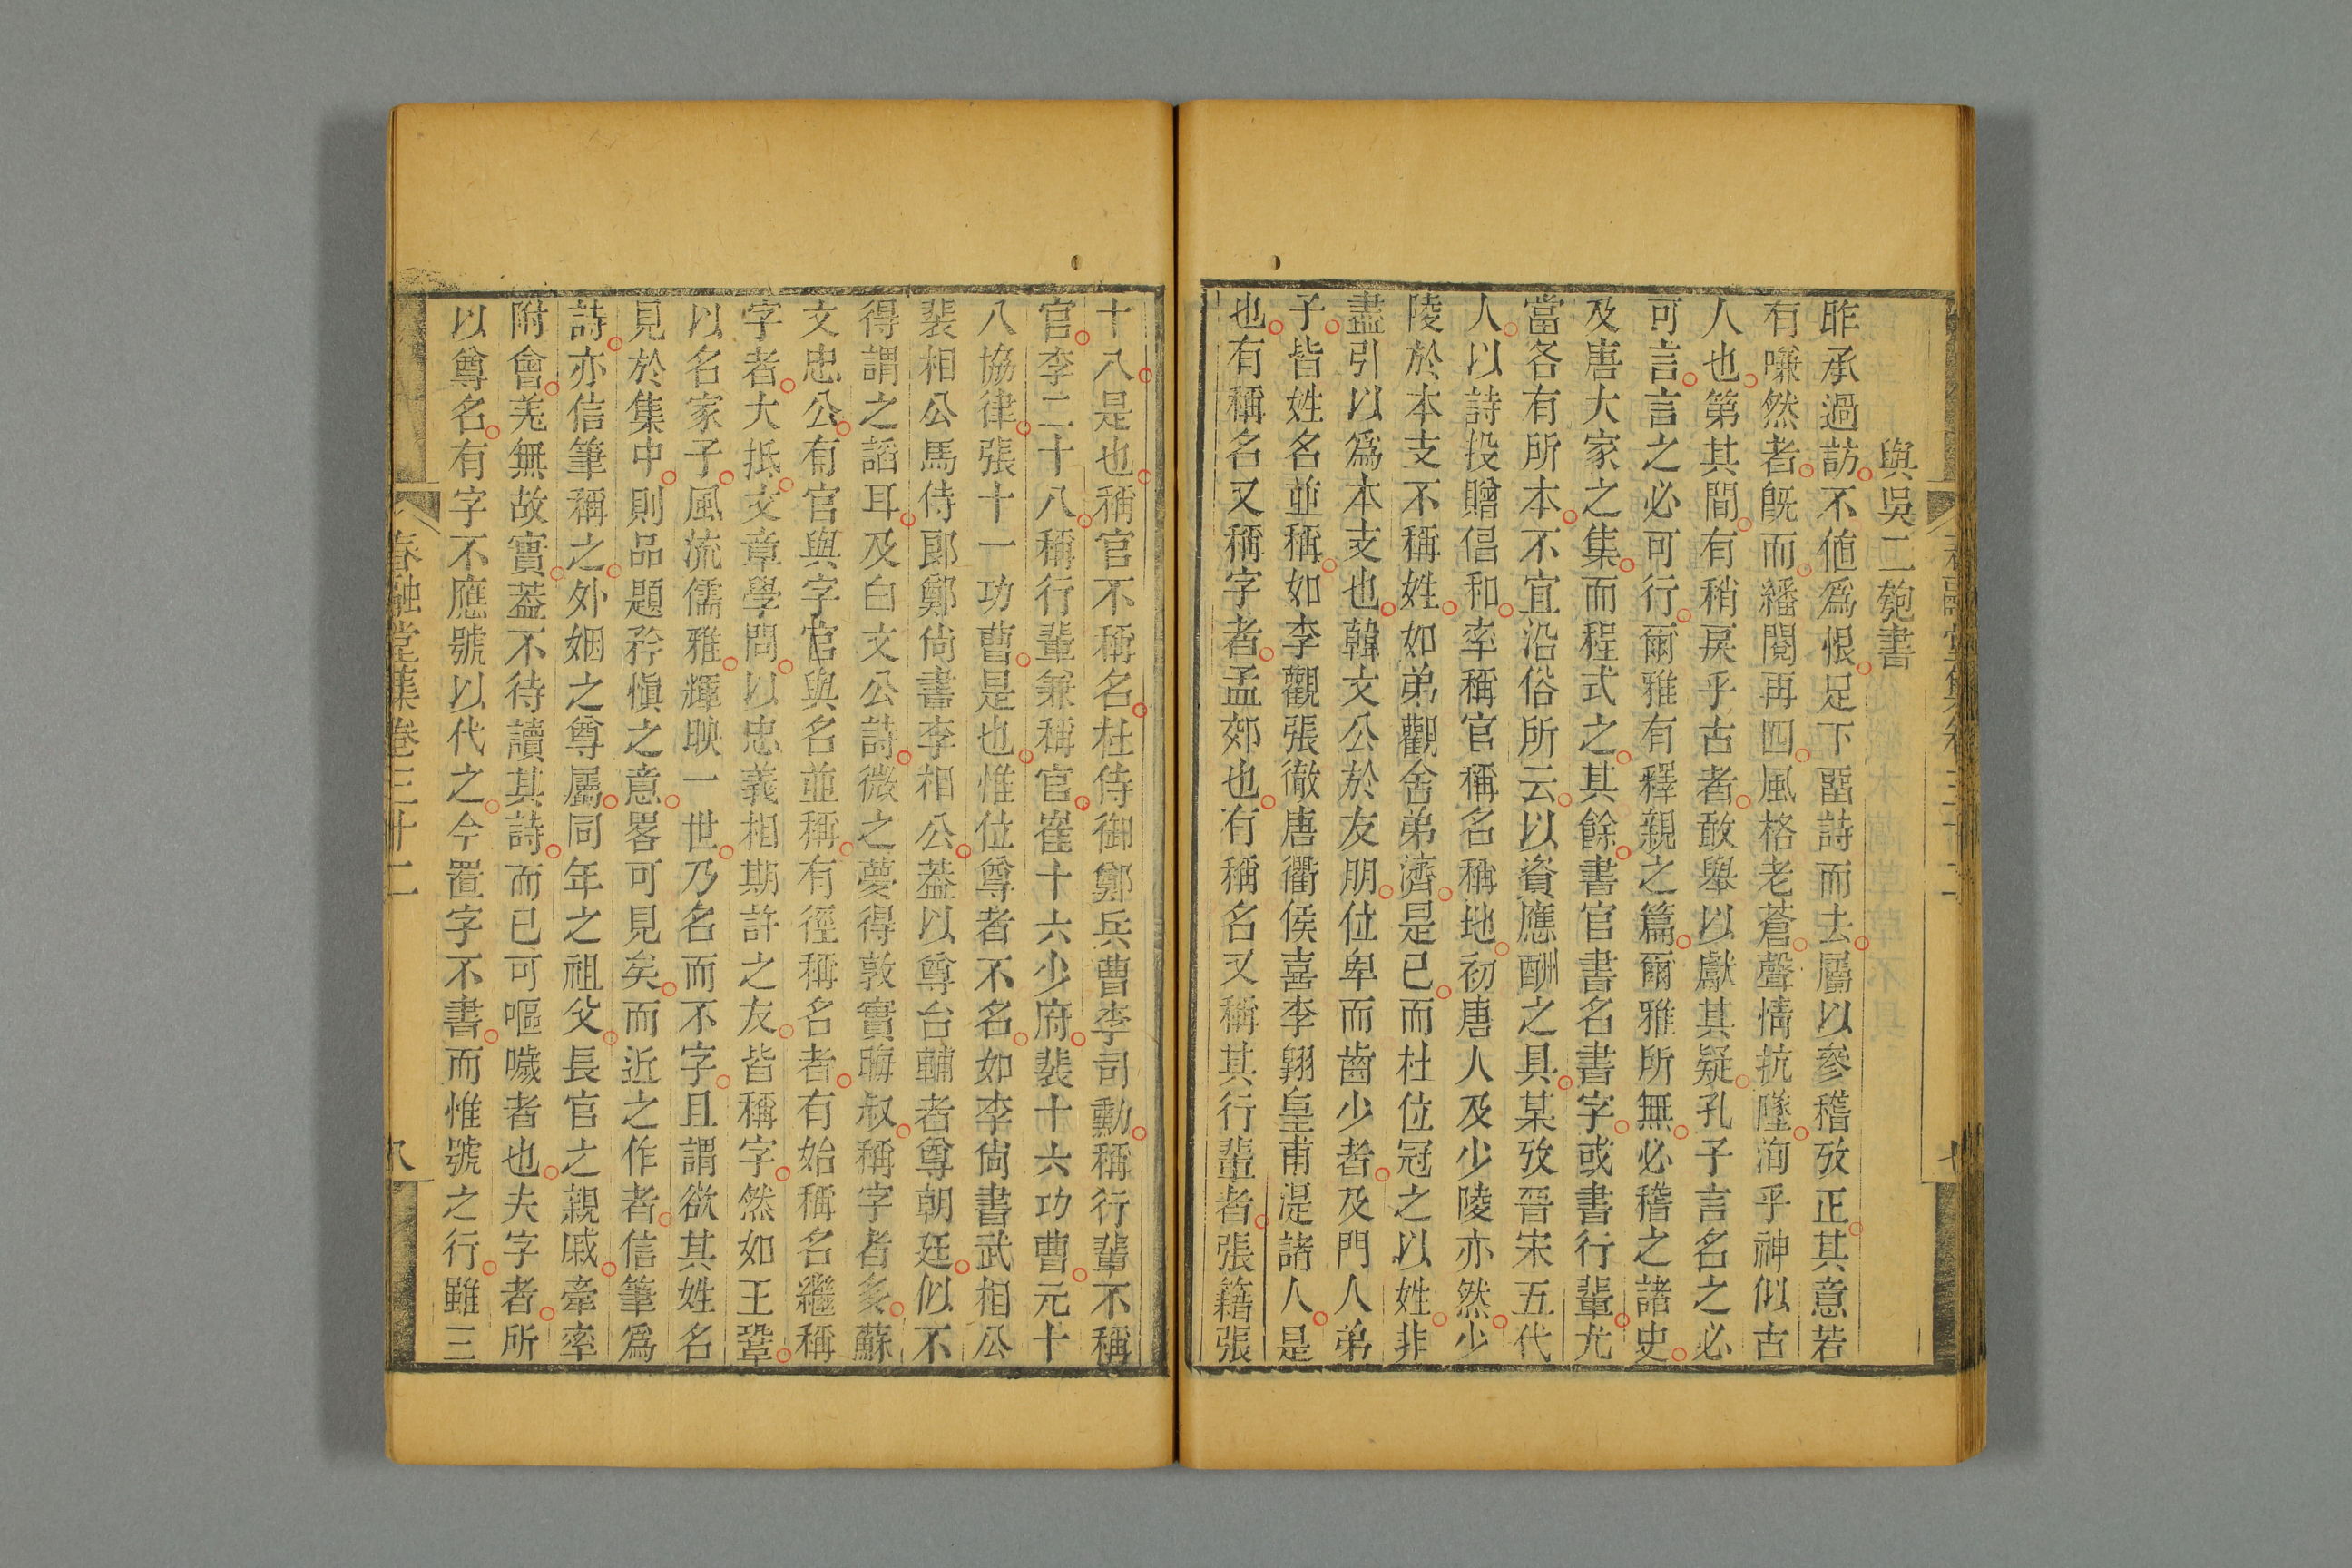 與吳二匏書
昨承過訪不値爲恨足下畱詩而去屬以參稽攷正其意若
有嗛然者旣而繙閱再四風格老蒼聲情抗墜洵乎神似古
人也第其間有稍戾乎古者敢舉以獻其疑孔子言名之必
可言言之必可行爾雅有釋親之篇爾雅所無必稽之諸史
及唐大家之集而程式之其餘書官書名書字或書行輩尤
當各有所本不宜沿俗所云以資應酬之具某攷晉宋五代
人以詩投贈倡和率稱官稱名稱地初唐人及少陵亦然少
陵於本支不稱姓如弟觀舍弟濟是已而杜位冠之以姓非
盡引以爲本支也韓文公於友朋位卑而齒少者及門人弟
子皆姓名並稱如李觀張徹唐衢侯喜李翱皇甫湜諸人是
也有稱名又稱字者孟郊也有稱名又稱其行輩者張籍張
春融堂集卷三十二
七
十八是也稱官不稱名杜侍御鄭兵曹李司勳稱行輩不稱
官李二十八稱行輩兼稱官崔十六少府裴十六功曹元十
八協律張十一功曹是也惟位尊者不名如李尙書武相公
裴相公馬侍郎鄭尙書李相公葢以尊台輔者尊朝廷似不
得謂之謟耳及白文公詩微之夢得敦實晦叔稱字者多蘇
文忠公有官與字官與名並稱有徑稱名者有始稱名繼稱
字者大抵文章學問以忠義相期許之友皆稱字然如王鞏
以名家子風流儒雅輝映一世乃名而不字且謂欲其姓名
見於集中則品題矜愼之意畧可見矣而近之作者信筆爲
詩亦信筆稱之外姻之尊屬同年之祖父長官之親戚牽率
附會羌無故實葢不待讀其詩而已可嘔噦者也夫字者所
以尊名有字不應號以代之今置字不書而惟號之行雖三
春融堂集卷三十二
八